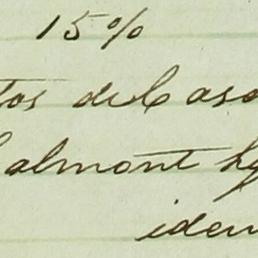 15%
tos del Caso
almont hy
iden